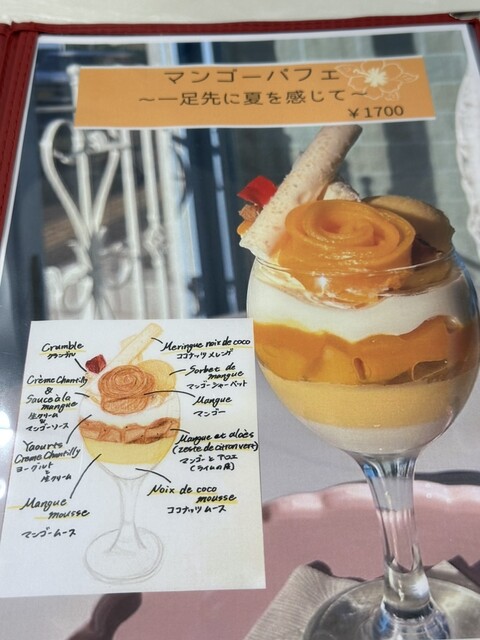 マンゴーパフェ
～一足先に夏を感じて～
￥1700
Crumble
クランブル
Crème Chantilly
&
Sauce à la
mangue
生クリーム
&
マンゴーソース
Yaourts
Crème Chantilly
ヨーグルト
と
生クリーム
Mangue
mousse
マンゴームース
Meringue noix de coco
ココナッツメレンゲ
Sorbet de
mangue
マンゴーシャーベット
Mangue
マンゴー
Mangue et aloès
(zeste de citron vert)
マンゴーとアロエ
(ライムの皮)
Noix de coco
mousse
ココナッツムース